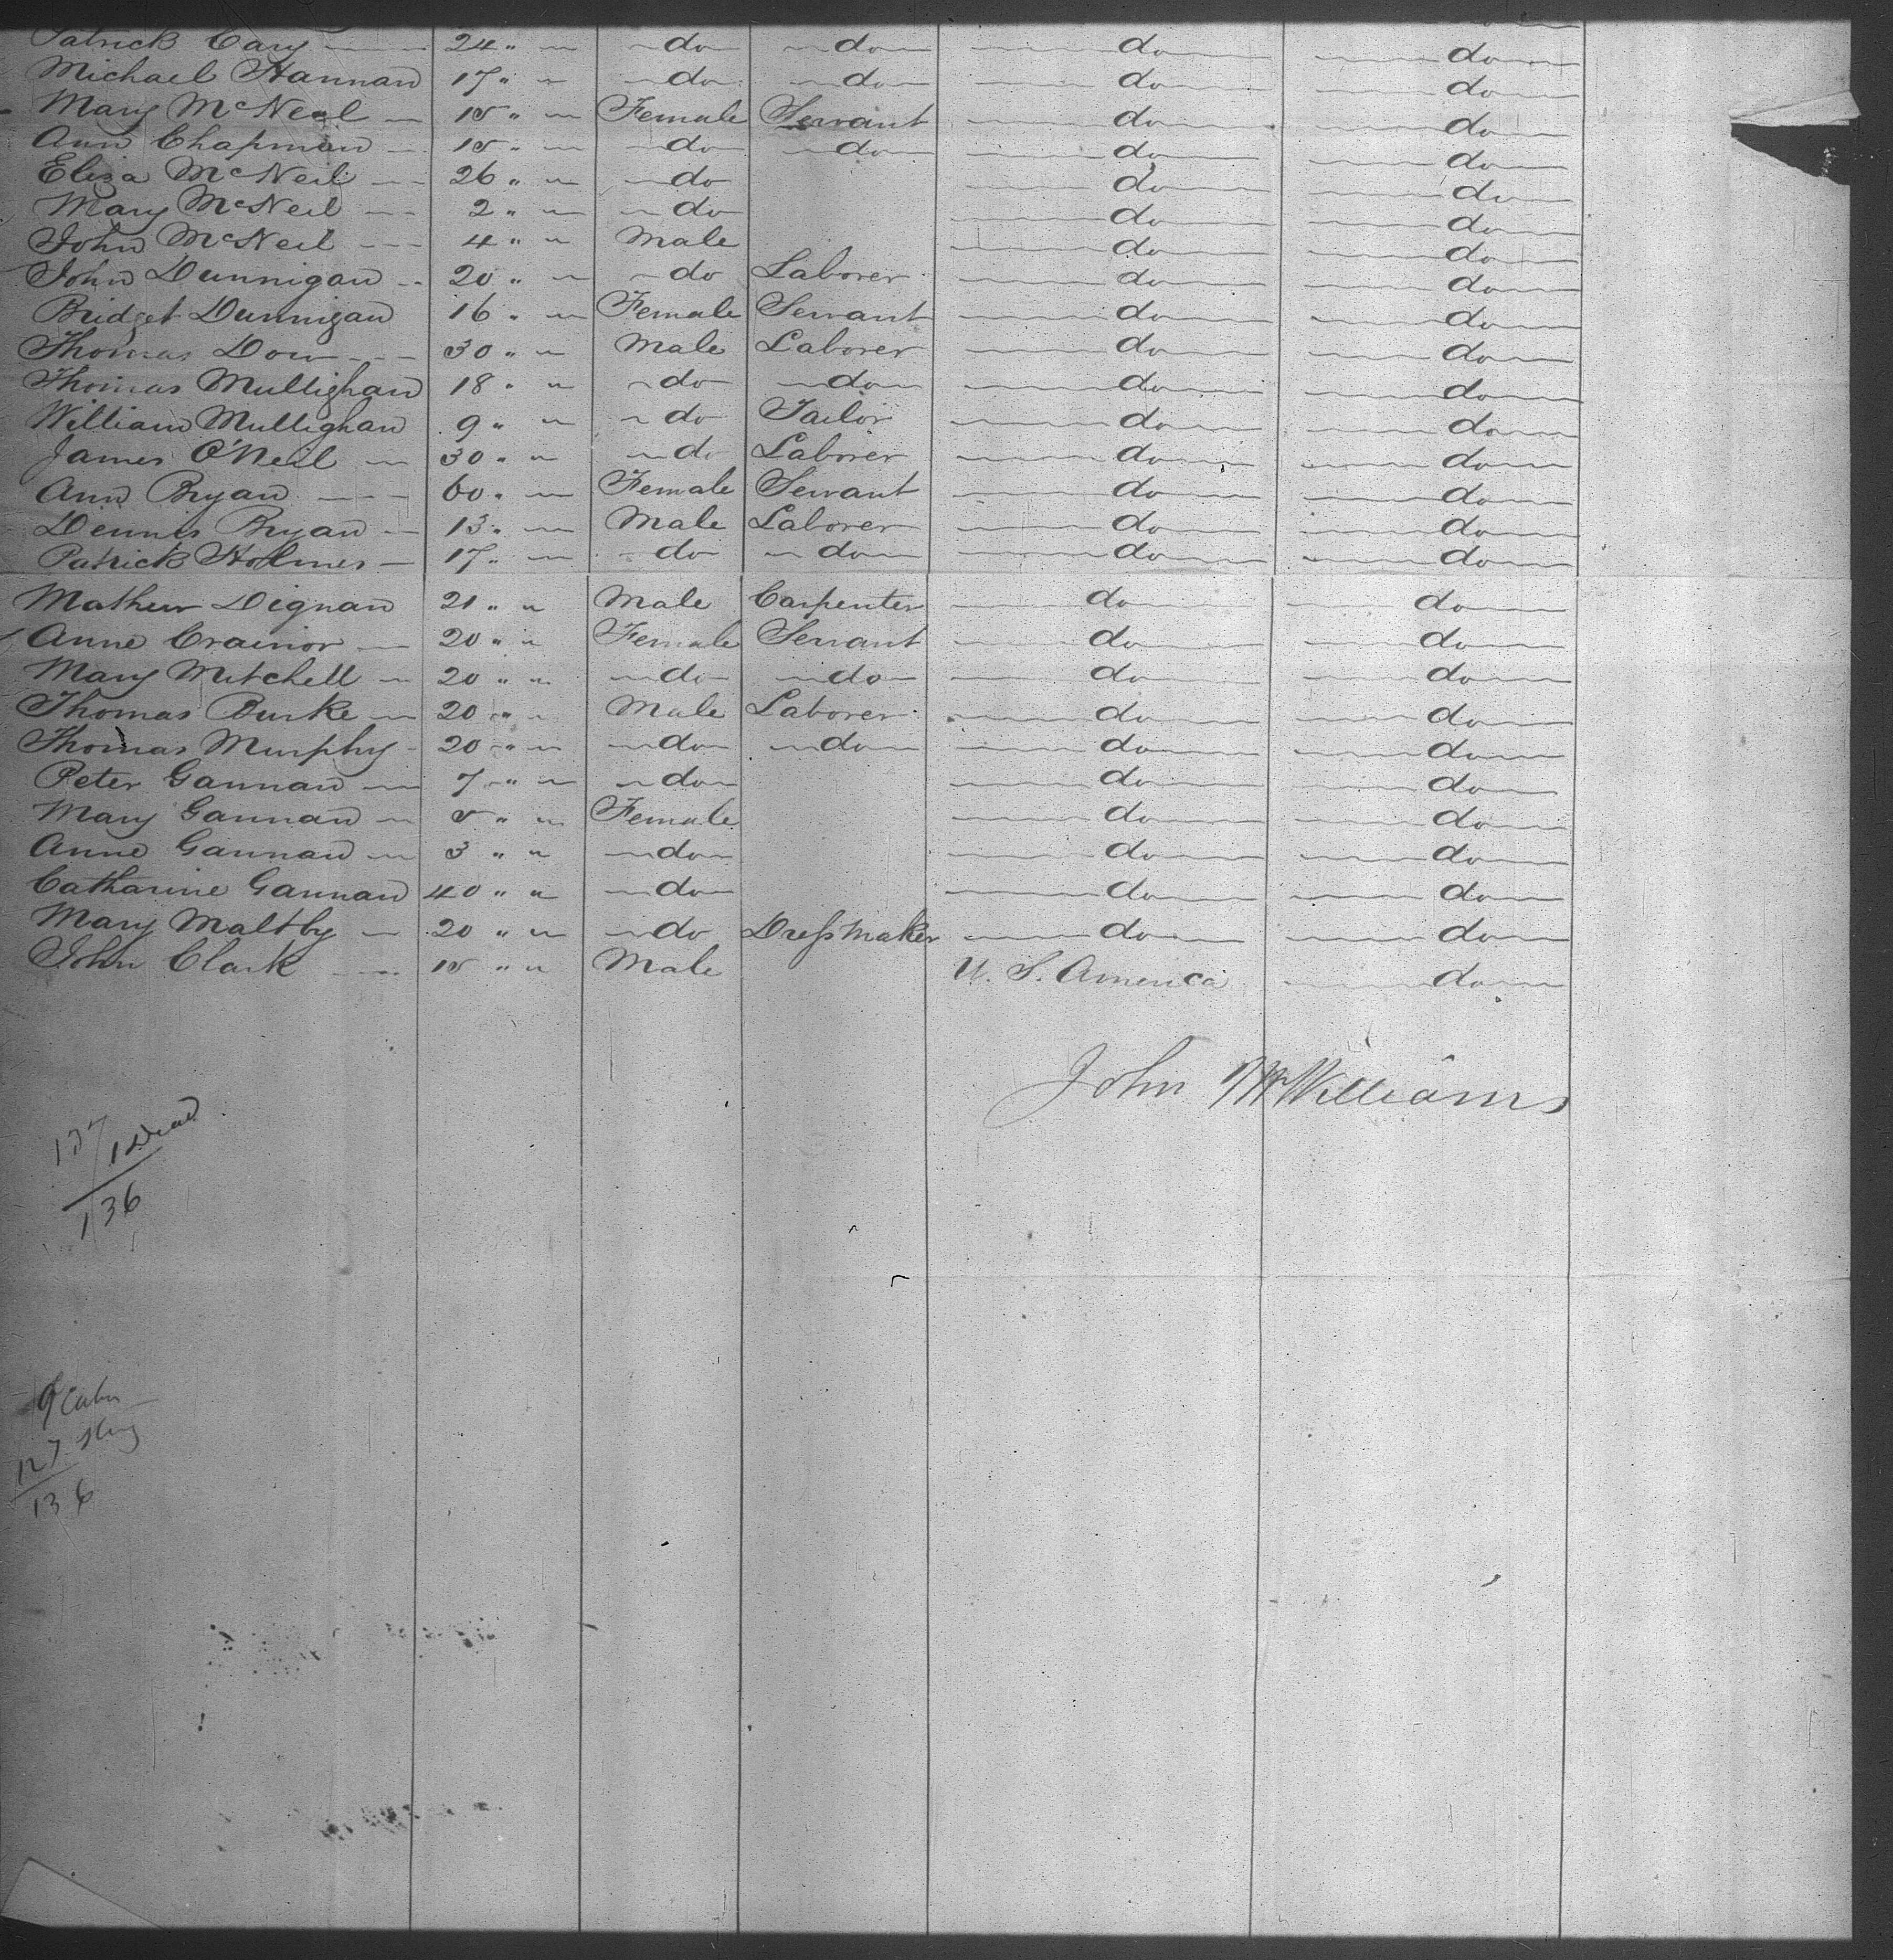 Patrick Cary 24 " " do do do do
Michael Hannan 17 " " do do do do
Mary McNeal 18 " " Female Servant do do
Ann Chapman 18 " " do do do do
Eliza McNeil 26 " " do do do
Mary McNeil 2 " " do do do
John McNeil 4 " " Male do do
John Dunnigan 20 " " do Laborer do do
Bridget Dunnigan 16 " " Female Servant do do
Thomas Dow 30 " " Male Laborer do do
Thomas Mullighan 18 " " do do do do
William Mullighan 9 " " do Tailor do do
James O'Neil 30 " " do Laborer do do
Ann Bryan 60 " " Female Servant do do
Dennis Bryan 13 " " Male Laborer do do
Patrick Holmes 17 " " do do do do
Mathew Dignan 21 " " Male Carpenter do do
Anne Crainor 20 " " Female Servant do do
Mary Mitchell 20 " " do do do do
Thomas Burke 20 " " Male Laborer do do
Thomas Murphy 20 " " do do do do
Peter Gannan 7 " " do do do
Mary Gannan 5 " " Female do do
Anne Gannan 3 " " do do do
Catharine Gannan 40 " " do do do
Mary Maltby 20 " " do Dressmaker do do
John Clark 18 " " Male U. S. America do
John McWilliams
137
1 Dead
136
9 Cabn
127
136